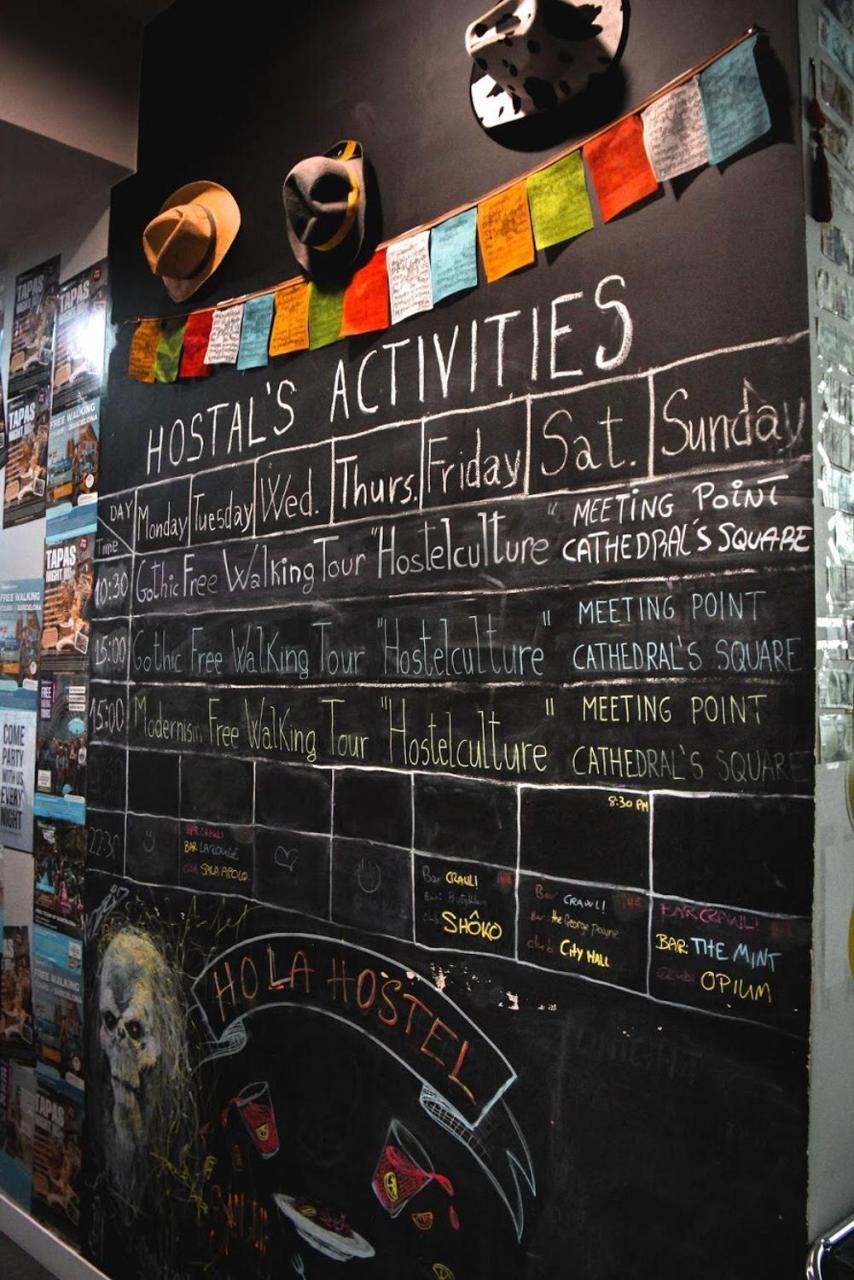 HOSTAL'S ACTIVITIES
DAY
Time
Monday Tuesday Wed. Thurs. Friday Sat. Sunday
10:30 Gothic Free Walking Tour "Hostelculture" MEETING POINT
CATHEDRAL'S SQUARE
15:00 Gothic Free Walking Tour "Hostelculture" MEETING POINT
CATHEDRAL'S SQUARE
15:00 Modernism Free Walking Tour "Hostelculture" MEETING POINT
CATHEDRAL'S SQUARE
8:30 PM
22:30
BAR CRAWL!
BAR
SALA APOLO
Bar CRAWL!
SHÔKO
Bar CRAWL!
Bar the George Payne
club CITY HALL
BAR CRAWL!
BAR: THE MINT
OPIUM
HOLA HOSTEL
TONIGHT
TAPAS
TAPAS
TAPAS
FREE WALKING
TAPAS
FREE WALKING
COME
PARTY
WITH US
EVERY
NIGHT
FREE WALKING
TAPAS